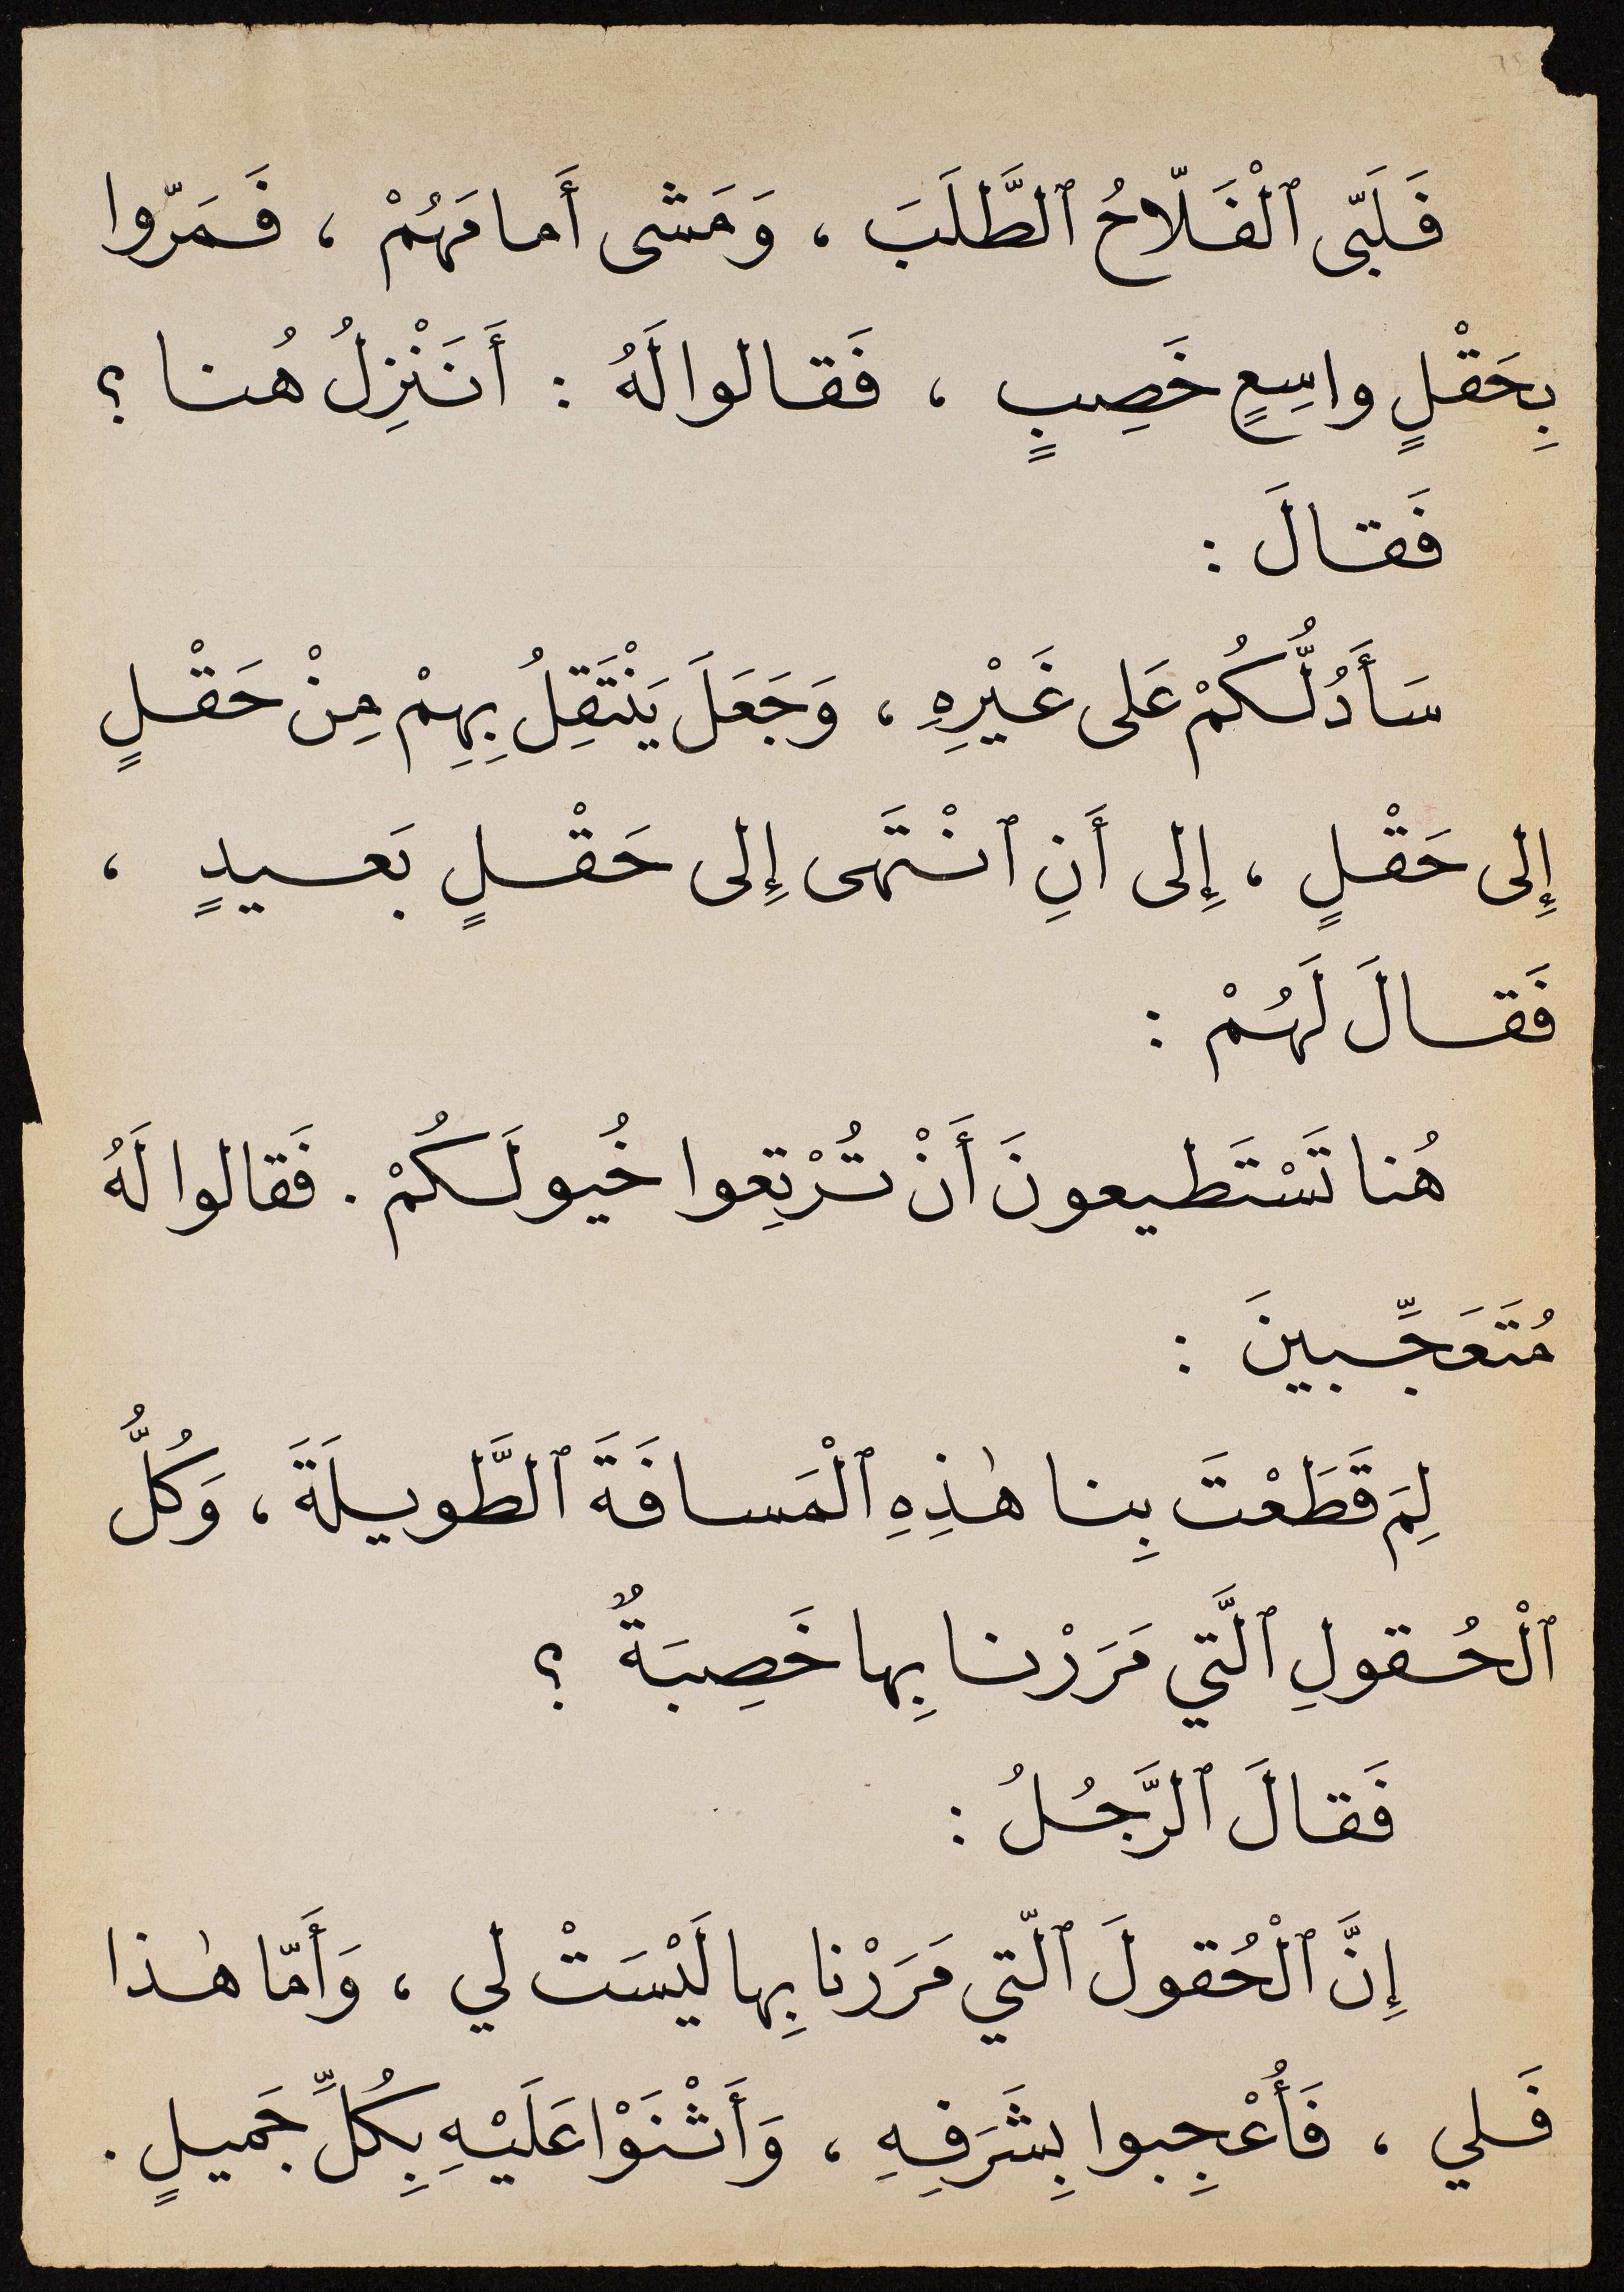 فَلَبّى ٱلْفَلّاحُ ٱلطَّلَبَ ، وَمَشى أَمامَهُمْ ، فَمَرّوا
بِحَقْلٍ واسِعٍ خَصِبٍ ، فَقالوا لَهُ : أَنَنْزِلُ هُنا ؟
فَقالَ :
سَأَدُلُّكُمْ عَلى غَيْرِهِ ، وَجَعَلَ يَنْتَقِلُ بِهِمْ مِنْ حَقْلٍ
إِلى حَقْلٍ ، إِلى أَنِ ٱنْتَهى إِلى حَقْلٍ بَعيدٍ ،
فَقالَ لَهُمْ :
هُنا تَسْتَطيعونَ أَنْ تُرْتِعوا خُيولَكُمْ . فَقالوا لَهُ
مُتَعَجِّبينَ :
لِمَ قَطَعْتَ بِنا هٰذِهِ ٱلْمَسافَةَ ٱلطَّويلَةَ ، وَكُلُّ
ٱلْحُقولِ ٱلَّتي مَرَرْنا بِها خَصِبَةٌ ؟
فَقالَ ٱلرَّجُلُ :
إِنَّ ٱلْحُقولَ ٱلّتي مَرَرْنا بِها لَيْسَتْ لي ، وَأَمّا هٰذا
فَلي ، فَأُعْجِبوا بِشَرَفِهِ ، وَأَثْنَوْا عَلَيْهِ بِكُلِّ جَميلٍ .